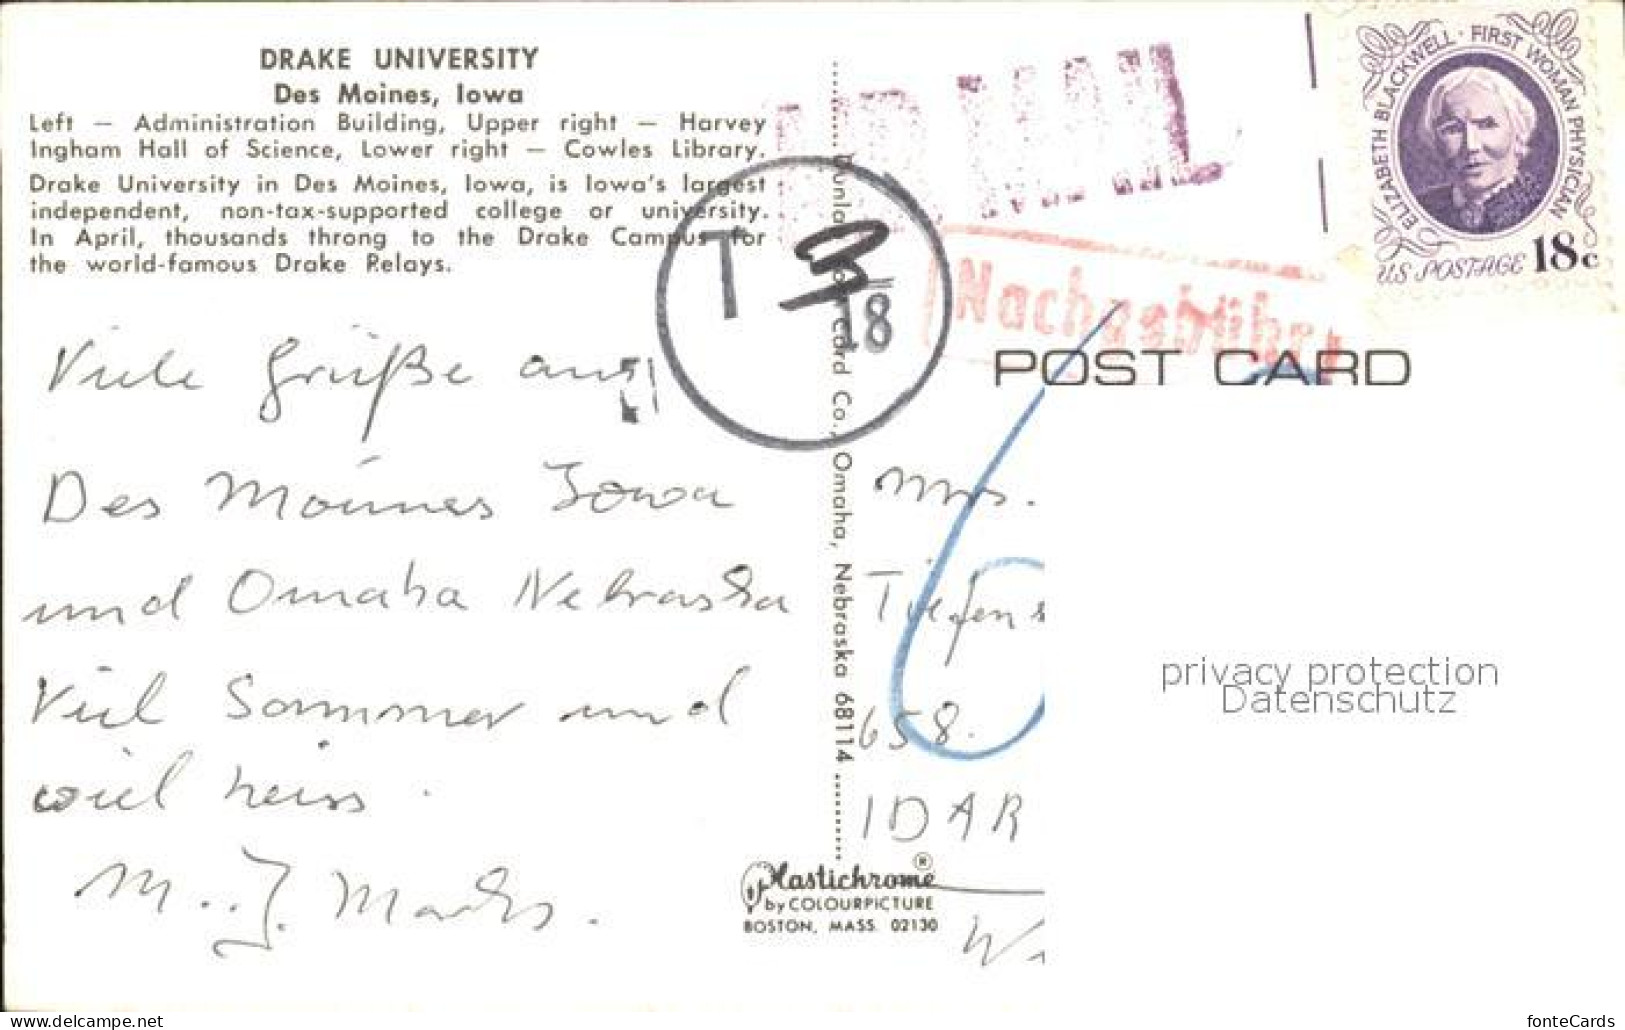 DRAKE UNIVERSITY
Des Moines, Iowa
Left — Administration Building, Upper right — Harvey
Ingham Hall of Science, Lower right — Cowles Library.
Drake University in Des Moines, Iowa, is Iowa's largest
independent, non-tax-supported college or university.
In April, thousands throng to the Drake Campus for
the world-famous Drake Relays.
Viele Grüße aus
Des Moines Iowa
und Omaha Nebraska
Viel Sommer und
viel heiss.
M. J. Marks.
Card Co., Omaha, Nebraska 68114
Plastichrome®
by COLOURPICTURE
BOSTON, MASS. 02130
AIR MAIL
T 18
Nachgebühr
ELIZABETH BLACKWELL · FIRST WOMAN PHYSICIAN
US POSTAGE 18c
POST CARD
Mrs.
Tiefens
658.
IDAR
W
privacy protection
Datenschutz
www.delcampe.net
fonteCards